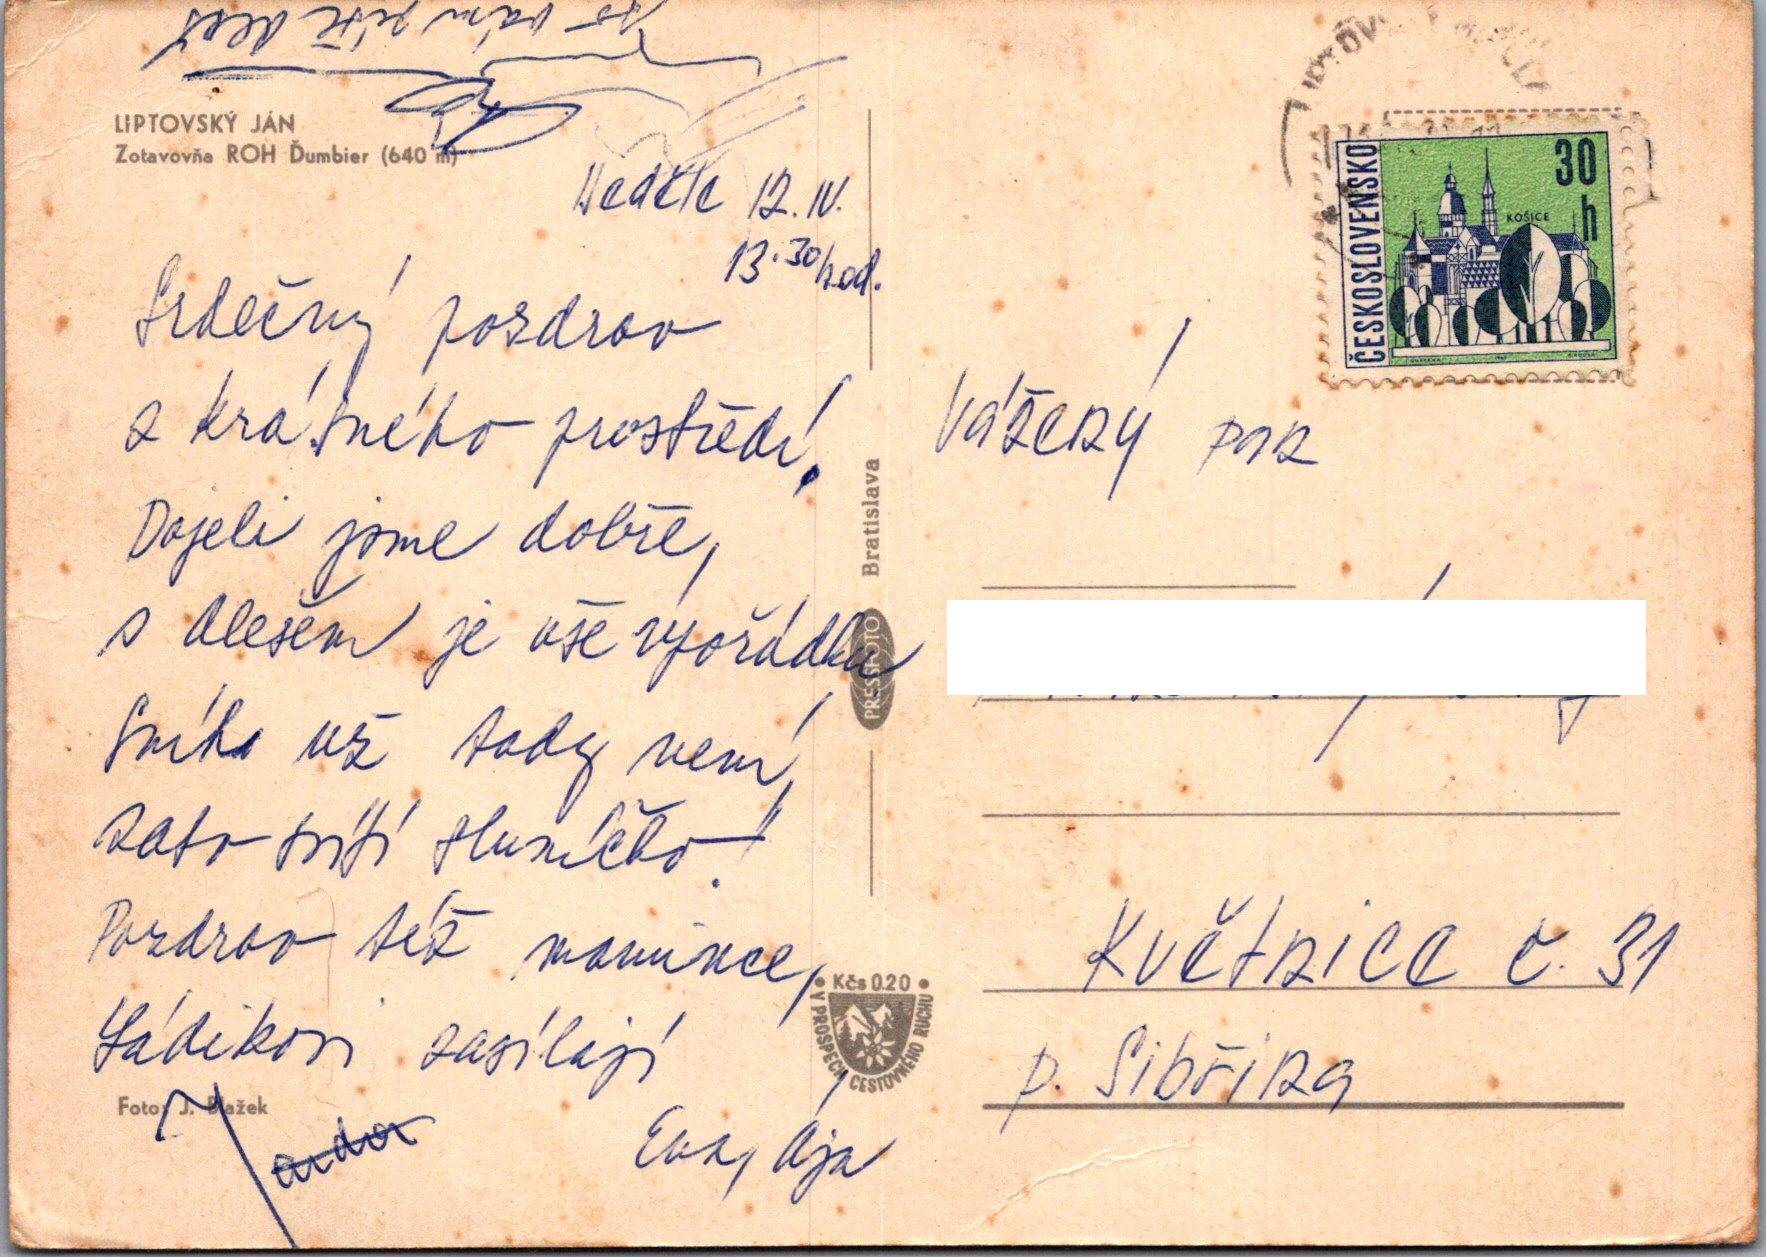 to vám píše Aleš
LIPTOVSKÝ JÁN
Zotavovňa ROH Ďumbier (640 m)
Neděle 12. IV.
13.30 hod.
Srdečný pozdrav
z krásného prostředí.
Dojeli jsme dobře,
s Alešem je vše v pořádku
Sníh už tady není,
zato svítí sluníčko!
Pozdrav též mamince,
Ládikovi zasílají
Eva, Ája
Foto: J. Blažek
Bratislava
PRESSFOTO
Kčs 0.20
V PROSPĚCH CESTOVNÉHO RUCHU
ČESKOSLOVENSKO
30 h
KOŠICE
Vážený pan
Květnice č. 31
p. Sibřina